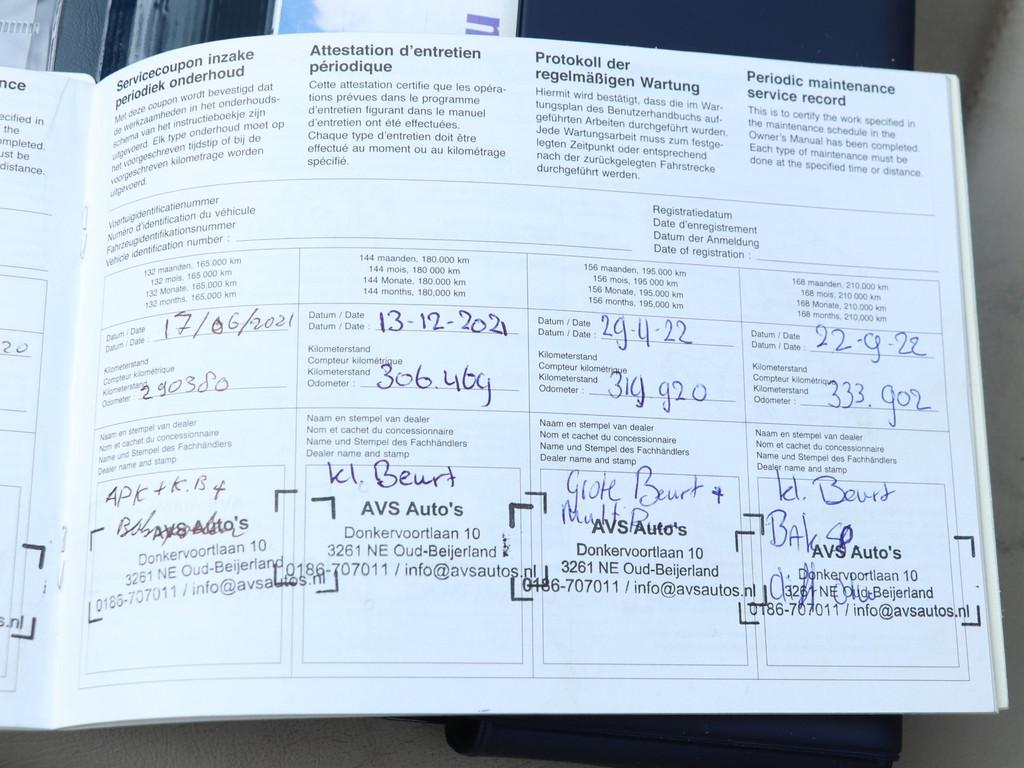 nce
ecified in
the
mpleted.
ust be
distance.
20
s.nl
n
Servicecoupon inzake
periodiek onderhoud
Met deze coupon wordt bevestigd dat
de werkzaamheden in het onderhouds-
schema van het instructieboekje zijn
uitgevoerd. Elk type onderhoud moet op
het voorgeschreven tijdstip of bij de
voorgeschreven kilometrage worden
uitgevoerd.
Attestation d'entretien
périodique
Cette attestation certifie que les opéra-
tions prévues dans le programme
d'entretien figurant dans le manuel
d'entretien ont été effectuées.
Chaque type d'entretien doit être
effectué au moment ou au kilométrage
spécifié.
Protokoll der
regelmäßigen Wartung
Hiermit wird bestätigt, dass die im War-
tungsplan des Benutzerhandbuchs auf-
geführten Arbeiten durchgeführt wurden.
Jede Wartungsarbeit muss zum festge-
legten Zeitpunkt oder entsprechend
nach der zurückgelegten Fahrstrecke
durchgeführt werden.
Periodic maintenance
service record
This is to certify the work specified in
the maintenance schedule in the
Owner's Manual has been completed.
Each type of maintenance must be
done at the specified time or distance.
Voertuigidentificatienummer
Numéro d'identification du véhicule
Fahrzeugidentifikationsnummer
Vehicle identification number :
Registratiedatum
Date d'enregistrement
Datum der Anmeldung
Date of registration :
132 maanden, 165.000 km
132 mois, 165 000 km
132 Monate, 165.000 km
132 months, 165,000 km
Datum / Date
Datum / Date : 17/06/2021
Kilometerstand
Compteur kilométrique
Kilometerstand
Odometer : 290380
Naam en stempel van dealer
Nom et cachet du concessionnaire
Name und Stempel des Fachhändlers
Dealer name and stamp
APK + K.B +
AVS Auto's
Donkervoortlaan 10
3261 NE Oud-Beijerland
0186-707011 / info@avsautos.nl
144 maanden, 180.000 km
144 mois, 180 000 km
144 Monate, 180.000 km
144 months, 180,000 km
Datum / Date
Datum / Date : 13-12-2021
Kilometerstand
Compteur kilométrique
Kilometerstand
Odometer : 306.469
Naam en stempel van dealer
Nom et cachet du concessionnaire
Name und Stempel des Fachhändlers
Dealer name and stamp
kl. Beurt
AVS Auto's
Donkervoortlaan 10
3261 NE Oud-Beijerland
0186-707011 / info@avsautos.nl
156 maanden, 195.000 km
156 mois, 195 000 km
156 Monate, 195.000 km
156 months, 195,000 km
Datum / Date
Datum / Date : 29-4-22
Kilometerstand
Compteur kilométrique
Kilometerstand
Odometer : 319 920
Naam en stempel van dealer
Nom et cachet du concessionnaire
Name und Stempel des Fachhändlers
Dealer name and stamp
Grote Beurt +
AVS Auto's
Donkervoortlaan 10
3261 NE Oud-Beijerland
0186-707011 / info@avsautos.nl
168 maanden, 210.000 km
168 mois, 210 000 km
168 Monate, 210.000 km
168 months, 210,000 km
Datum / Date
Datum / Date : 22-9-22
Kilometerstand
Compteur kilométrique
Kilometerstand
Odometer : 333.902
Naam en stempel van dealer
Nom et cachet du concessionnaire
Name und Stempel des Fachhändlers
Dealer name and stamp
kl. Beurt
AVS Auto's
Donkervoortlaan 10
3261 NE Oud-Beijerland
0186-707011 / info@avsautos.nl